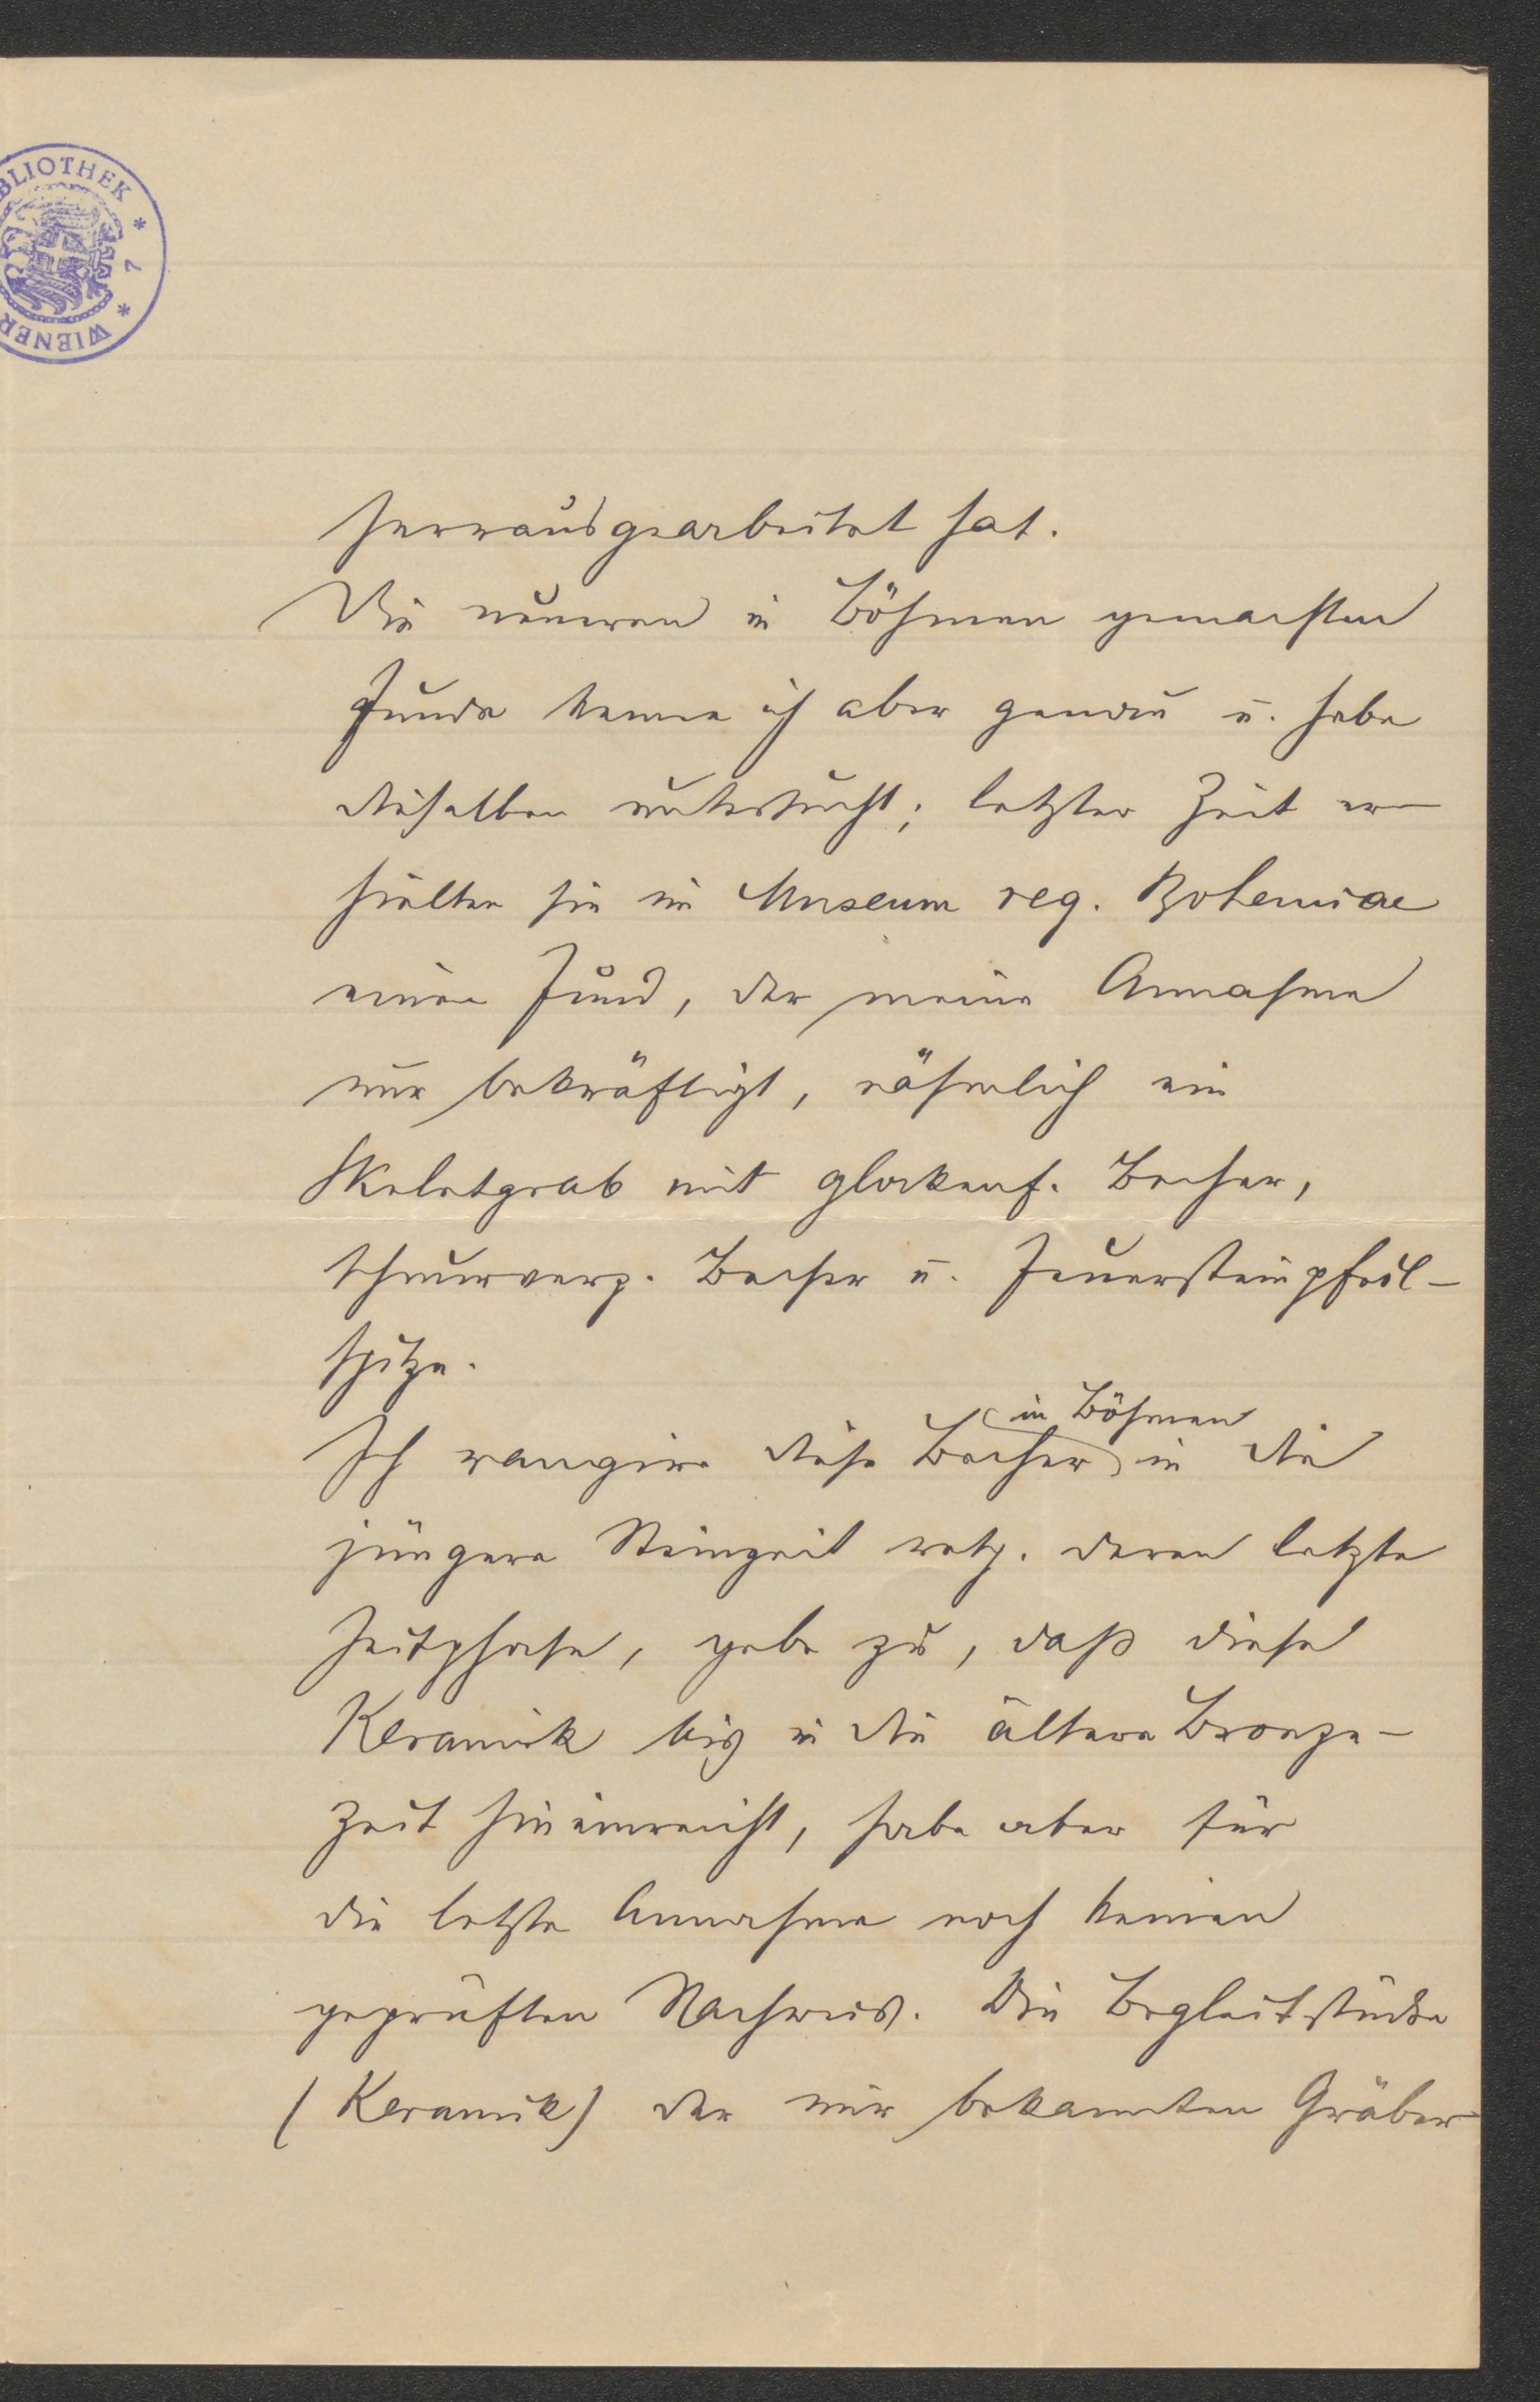 BLIOTHEK * 7 * WIENER
herrausgearbeitet hat.
Die neueren in Böhmen gemachten
Funde kenne ich aber genau u. habe
dieselben untersucht; letzter Zeit er-
hielten sie im Museum reg. Bohemiae
einen Fund, der meine Annahme
nur bekräftigt, nähmlich ein
Skeletgrab mit glockenf. Becher,
schnurverz. Becher u. Feuersteinpfeil-
spitze.
in Böhmen
Ich rangire diese Becher in die
jüngere Steinzeit resp. deren letzte
Zeitphase, gebe zu, daß diese
Keramik bis in die ältere Bronze-
zeit hineinreicht, habe aber für
die letzte Annahme noch keinen
geprüften Nachweis. Die Begleitstücke
(Keramik) der mir bekannten Gräber